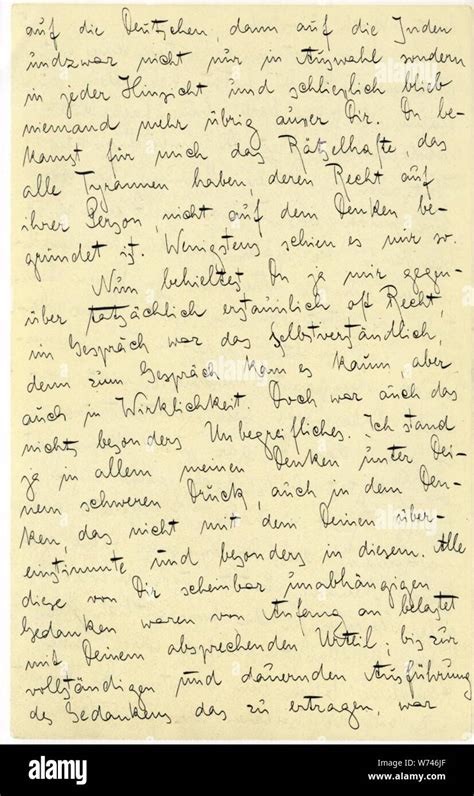 auf die Deutschen, dann auf die Juden
undzwar nicht nur in Auswahl sondern
in jeder Hinsicht und schliesslich blieb
niemand mehr übrig ausser Dir. Du be-
kamst für mich das Rätselhafte, das
alle Tyrannen haben, deren Recht auf
ihrer Person, nicht auf dem Denken be-
gründet ist. Wenigstens schien es mir so.
Nun behieltest Du ja mir gegen-
über tatsächlich erstaunlich oft Recht,
im Gespräch war das selbstverständlich,
denn zum Gespräch kam es kaum, aber
auch in Wirklichkeit. Doch war auch das
nichts besonders Unbegreifliches. Ich stand
ja in allem meinen Denken unter Dei-
nem schweren Druck, auch in dem Den-
ken, das nicht mit dem Deinen über-
einstimmte und besonders in diesem. Alle
diese von Dir scheinbar unabhängigen
Gedanken waren von Anfang an belastet
mit Deinem absprechenden Urteil; bis zur
vollständigen und dauernden Ausführung
des Gedankens das zu ertragen, war
alamy
alamy
alamy
alamy
alamy
Image ID: W746JF
www.alamy.com